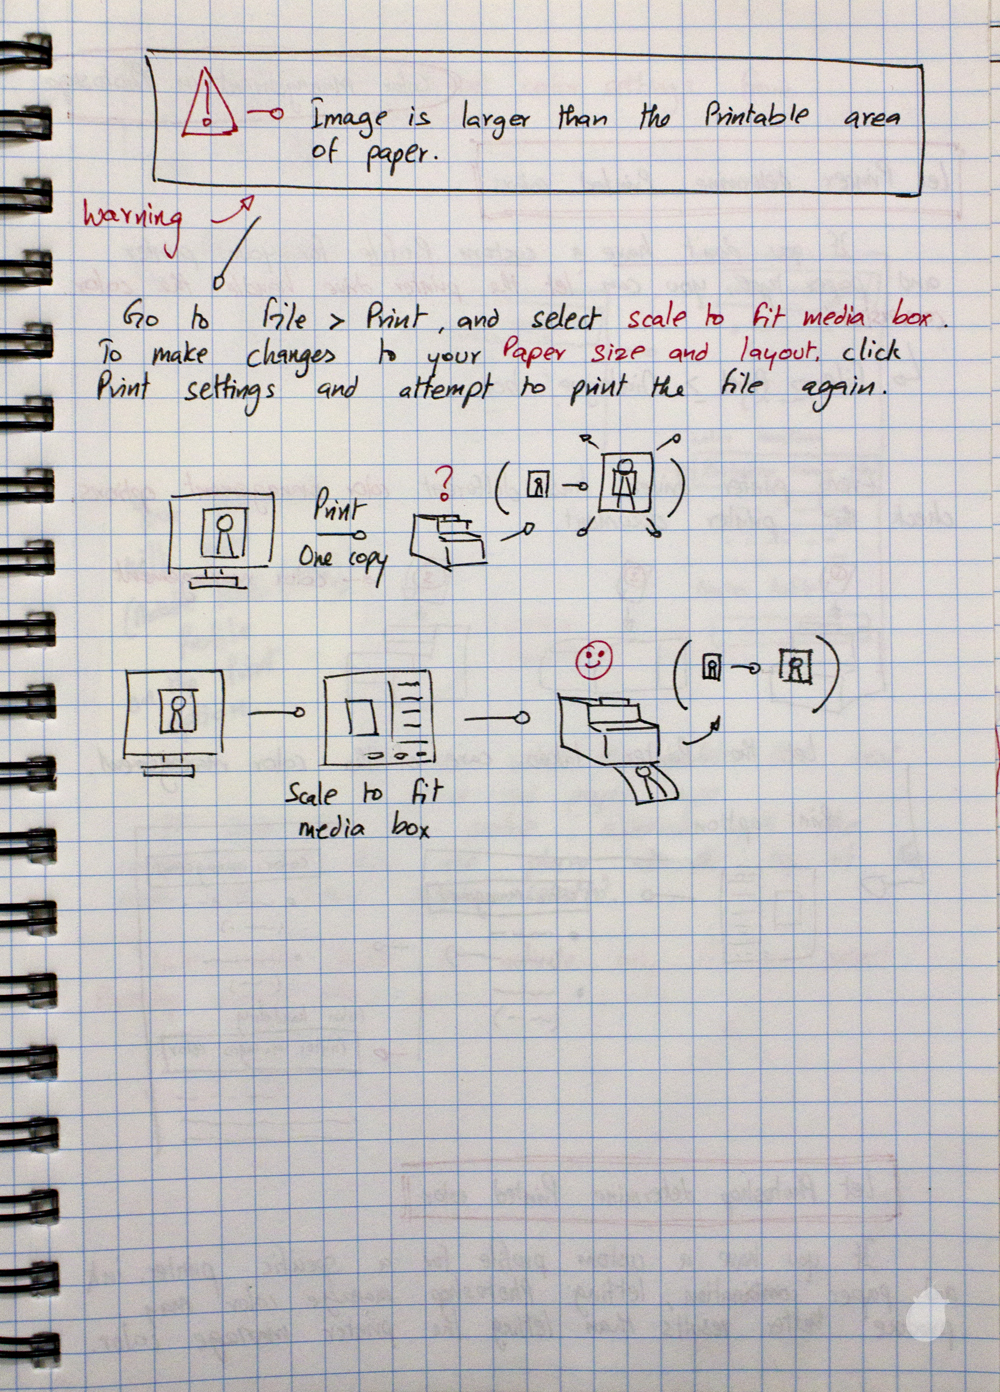 ! Image is larger than the Printable area
of paper.
Warning
Go to File > Print, and select scale to fit media box.
To make changes to your Paper size and layout, click
Print settings and attempt to print the file again.
?
Print
One copy
Scale to fit
media box